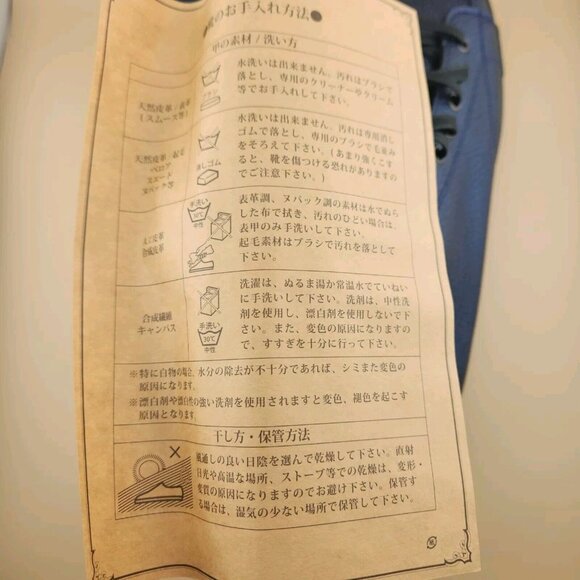 のお手入れ方法●
甲の素材 / 洗い方
天然皮革・表革
(スムース等)
水洗いは出来ません。汚れはブラシで
落とし、専用のクリーナーやクリーム
等でお手入れして下さい。
天然皮革・起毛
ベロア
スエード
ヌバック等
消しゴム
水洗いは出来ません。汚れは専用消し
ゴムで落とし、専用のブラシで毛並み
をそろえて下さい。(あまり強くこす
ると、靴を傷つける恐れがありますの
でご注意下さい。)
合成皮革
手洗い
30℃
中性
表革調、ヌバック調の素材は水でぬら
した布で拭き、汚れのひどい場合は、
表甲のみ手洗いして下さい。
起毛素材はブラシで汚れを落として
下さい。
合成繊維
キャンバス
手洗い
30℃
中性
洗濯は、ぬるま湯か常温水でていねい
に手洗いして下さい。洗剤は、中性洗
剤を使用し、漂白剤を使用しないで下
さい。また、変色の原因になりますの
で、すすぎを十分に行って下さい。
※特に白物の場合、水分の除去が不十分であれば、シミまた変色の
原因になります。
※漂白剤や漂白性の強い洗剤を使用されますと変色、褪色を起こす
原因となります。
干し方・保管方法
風通しの良い日陰を選んで乾燥して下さい。直射
日光や高温な場所、ストーブ等での乾燥は、変形・
変質の原因になりますのでお避け下さい。保管す
る場合は、湿気の少ない場所で保管して下さい。